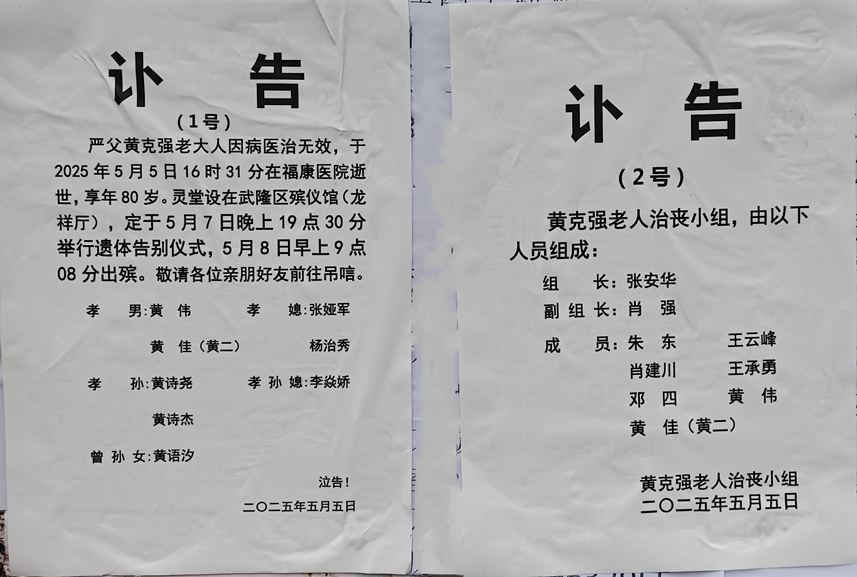 讣 告
(1号)
严父黄克强老大人因病医治无效，于
2025年5月5日16时31分在福康医院逝
世，享年80岁。灵堂设在武隆区殡仪馆（龙
祥厅），定于5月7日晚上19点30分
举行遗体告别仪式，5月8日早上9点
08分出殡。敬请各位亲朋好友前往吊唁。
孝 男:黄 伟 孝 媳:张娅军
黄 佳（黄二） 杨治秀
孝 孙:黄诗尧 孝 孙 媳:李焱娇
黄诗杰
曾 孙 女:黄语汐
泣告!
二〇二五年五月五日
讣 告
(2号)
黄克强老人治丧小组，由以下
人员组成：
组 长：张安华
副 组 长：肖 强
成 员：朱 东 王云峰
肖建川 王承勇
邓 四 黄 伟
黄 佳（黄二）
黄克强老人治丧小组
二〇二五年五月五日